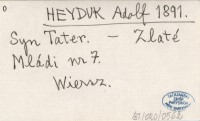 HEYDUK Adolf 1891.
Syn Tater. – Zlaté
Mládi nr 7.
Wiersz.